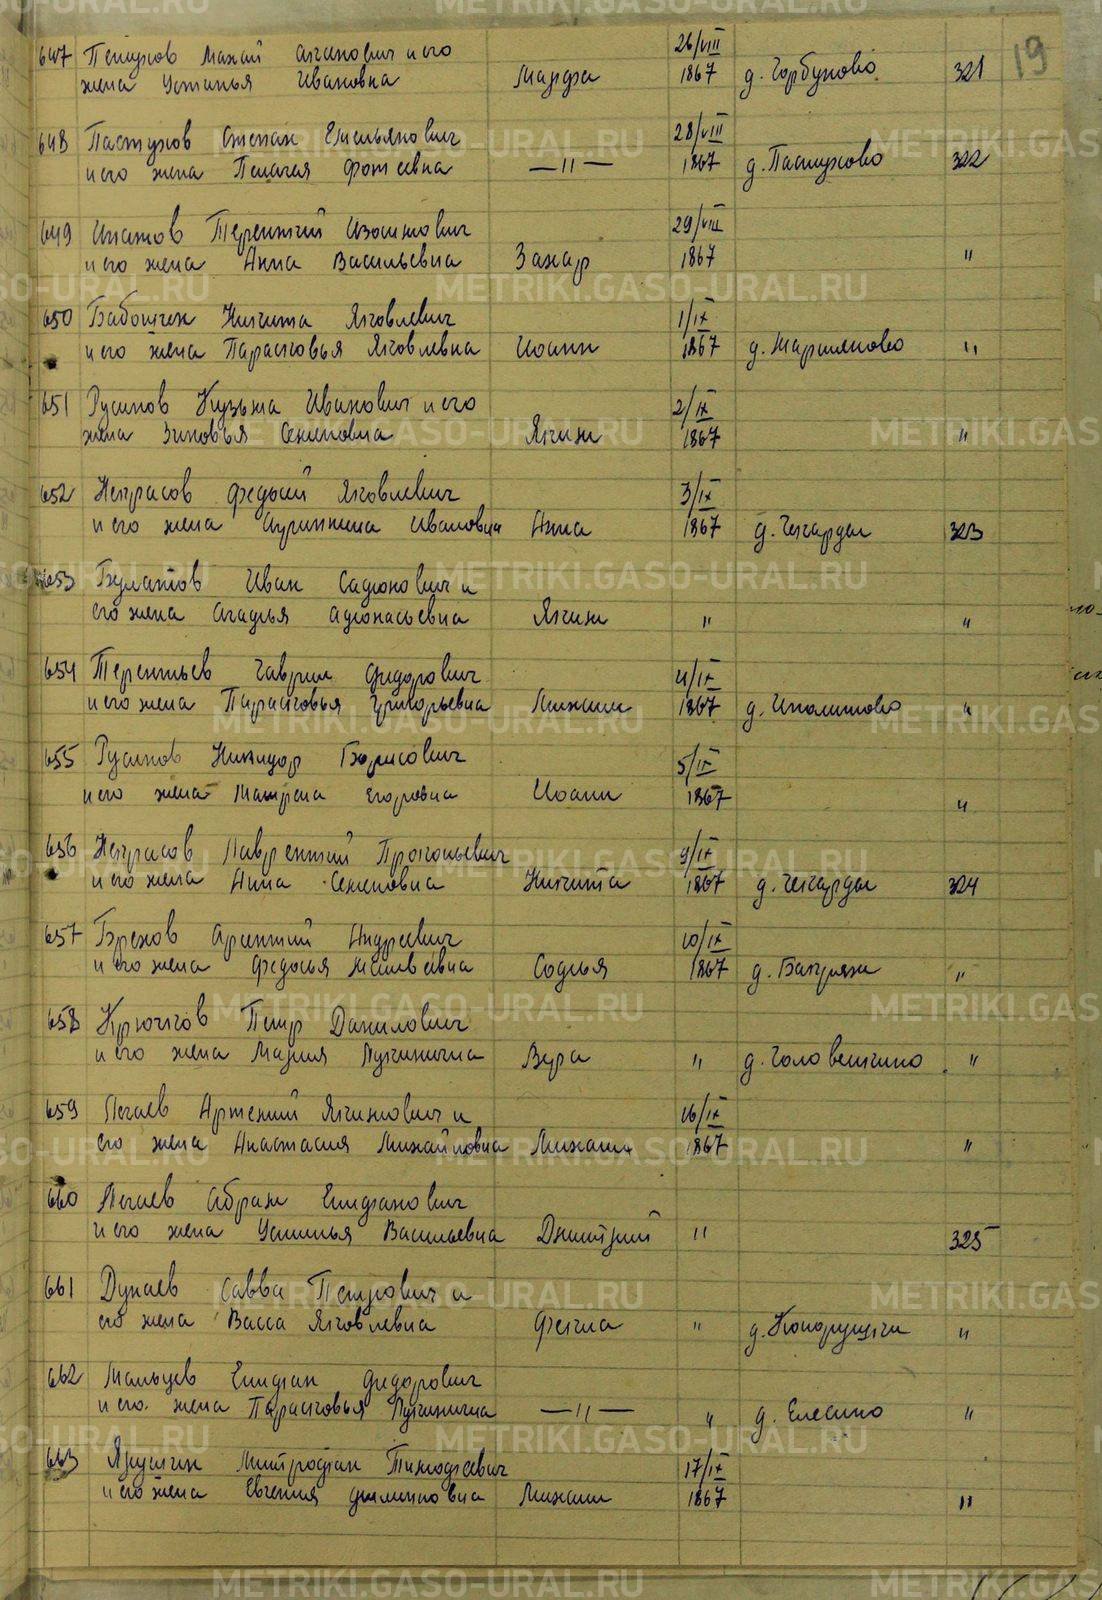 19
647 Петухов Макай и его 26/VIII
жена Устинья Ивановна Марфа 1867 д. Горбуново 321
648 Пастухов Степан Емельянович 28/VIII
и его жена Пелагея Фотеевна —"— 1867 д. Пастухово 322
649 Ипатов Терентий Изотович 29/VIII
и его жена Анна Васильевна Захар 1867 "
650 Бабошин Никита Яковлевич 1/IX
и его жена Парасковья Яковлевна Иоанн 1867 д. Мартьяново "
651 Русинов Кузьма Иванович и его 2/IX
жена Зиновья Семеновна Яким 1867 "
652 Некрасов Федосий Яковлевич 3/IX
и его жена Ивановна Анна 1867 д. Чекарды 323
653 Булатов Иван Сафонович и
его жена Агафья Афонасьевна Яким " "
654 Терентьев Гаврил Федорович 4/IX
и его жена Парасковья Григорьевна Михаил 1867 д. Иполитово "
655 Русинов Никифор Борисович 5/IX
и его жена Матрена Егоровна Иоанн 1867 "
656 Некрасов Лаврентий Прокопьевич 9/IX
и его жена Анна Семеновна Никита 1867 д. Чекарды 324
657 Брехов Арсентий Андреевич 10/IX
и его жена Федосья Матвеевна Софья 1867 д. "
658 Крючков Петр Данилович
и его жена Мария Лукинична Вера " д. "
659 Легаев Артемий Якимович и 16/IX
его жена Анастасия Михайловна Михаил 1867 "
660 Легаев Абрам Епифанович
и его жена Устинья Васильевна Дмитрий " 325
661 Дунаев Савва Петрович и
его жена Васса Яковлевна Фекла " д. "
662 Мальцев Епифан Федорович
и его жена Парасковья Лукинична —"— " д. Елесино "
663 Якушин Митрофан Тимофеевич 17/IX
и его жена Евгения Филиповна Михаил 1867 "
METRIKI.GASO-URAL.RU